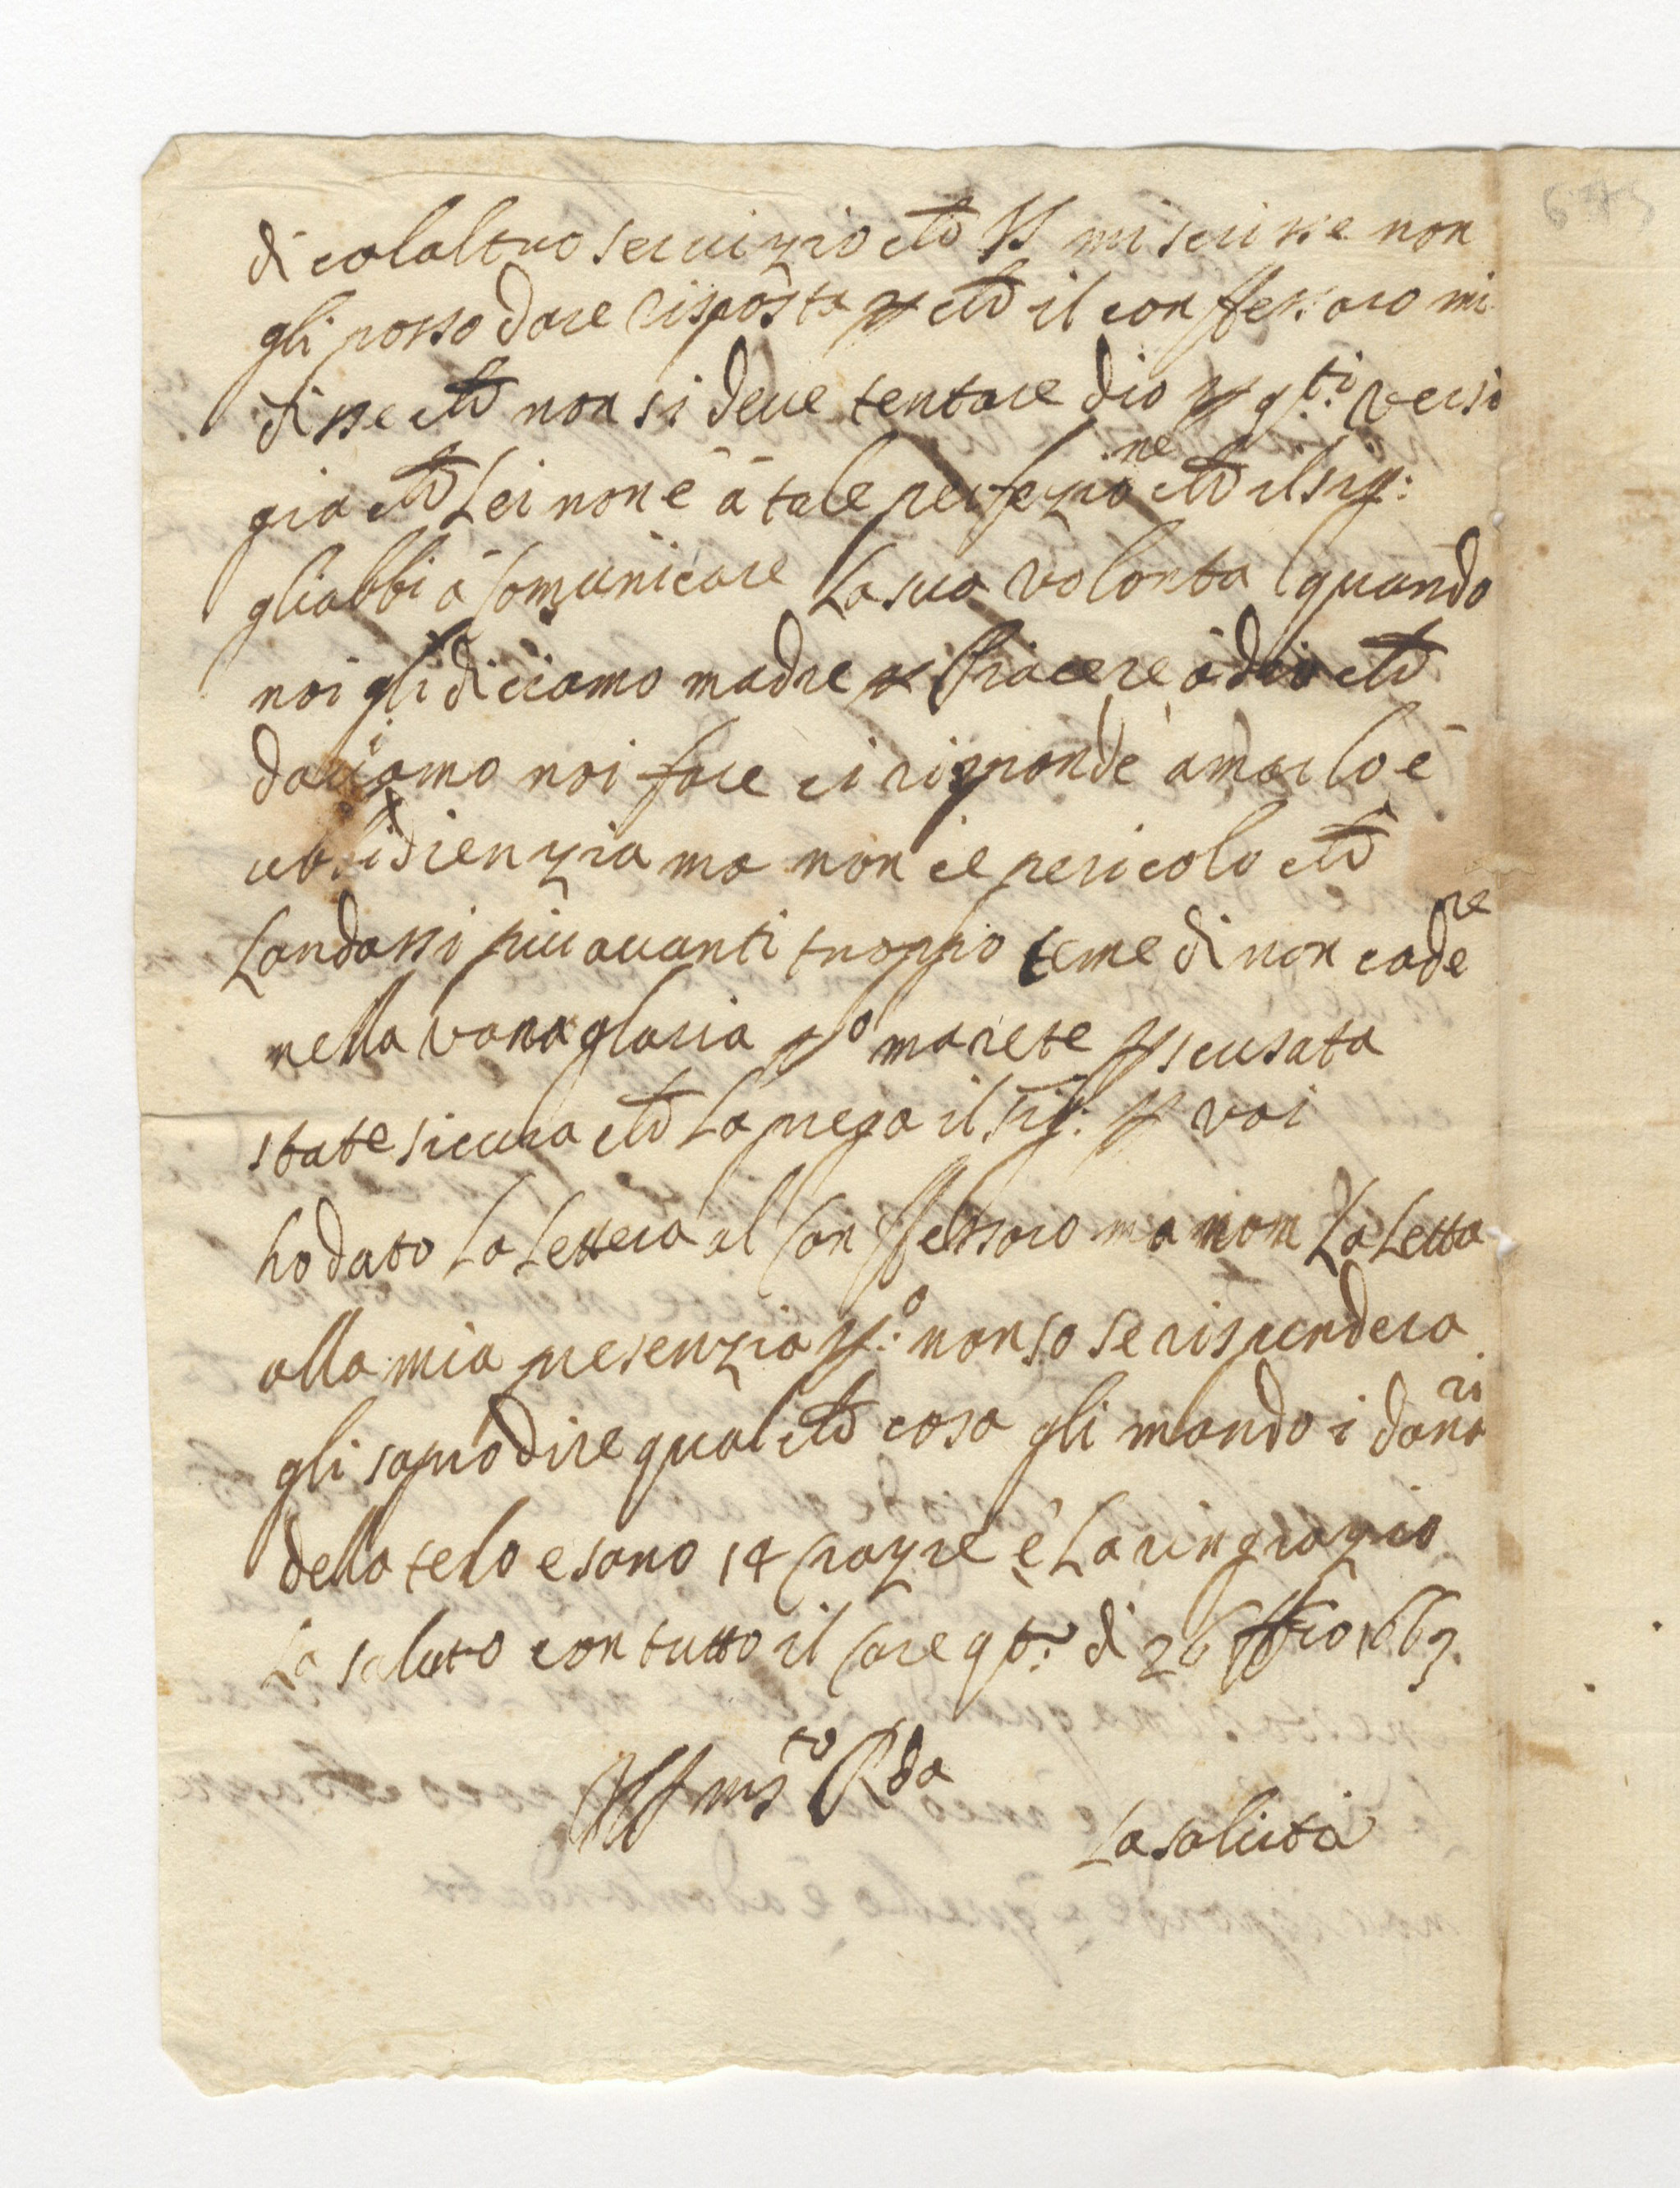 di colaltro seruizio che VS mi scrisse non
gli posso dare risposta p che il confessaro mi
disse che non si deue tentare dio p q.ti versi
gia che Lei non è à tale perfezione che il sig:
gliabbi à Comunicare La sua volonta quando
noi gli diciamo madre p Piacere à dio che
douiamo noi fare ci risponde amarlo è
ubidienzia ma non cè pericolo che
Landassi più auanti troppo teme di non cadere
nella vanagloria po marete p scusata
state sicura che La prega il sig: p voi
ho dato La Lettera al Confessaro ma non La Letta
alla mia presenzia p.o non so se rispondera
gli saprò dire qual che cosa gli mando i danari
della tela e sono 14 Crazie è La ringrazio
La saluto con tutto il Core q di 26 1663.
Aff.ma
La saluta